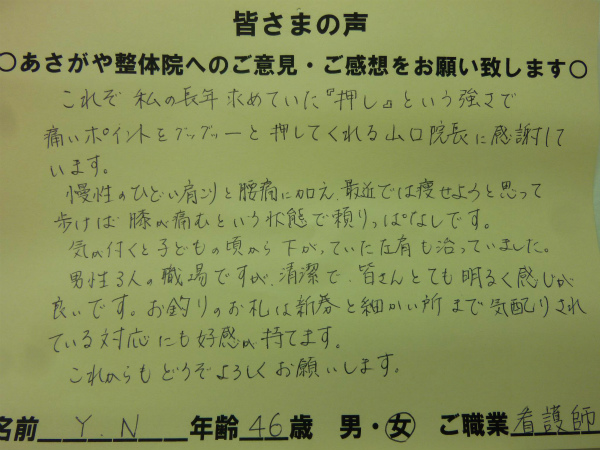 皆さまの声
○あさがや整体院へのご意見・ご感想をお願い致します○
これぞ 私の長年 求めていた『押し』という強さで
痛いポイントをグッグーと 押してくれる山口院長に感謝して
います。
慢性のひどい肩こりと腰痛に加え、最近では痩せようと思って
歩けば 膝が痛むという状態で頼りっぱなしです。
気が付くと子どもの頃から下がっていた左肩も治っていました。
男性3人の職場ですが、清潔で、皆さんとても明るく感じが
良いです。お釣りのお札は新券と細かい所まで気配りされ
ている対応にも好感が持てます。
これからもどうぞよろしくお願いします。
名前 Y.N 年齢 46 歳 男・女 ご職業 看護師